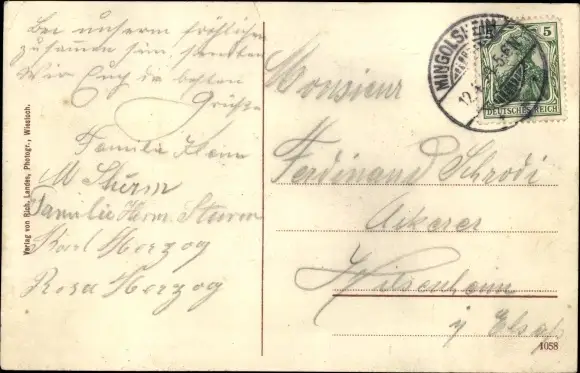 Bei unserm fröhlichen
zusammen sein senden
Wir Euch die besten
Grüße
Familie Klein
M Sturm
Familie Herm. Sturm
Karl Herzog
Rosa Herzog
Verlag von Rich. Landes, Photogr., Wiesloch.
MINGOLSHEIM
12.
5
DEUTSCHES REICH
Monsieur
Ferdinand Schrodi
Ackerer
Hilsenheim
i/ Elsaß
1058